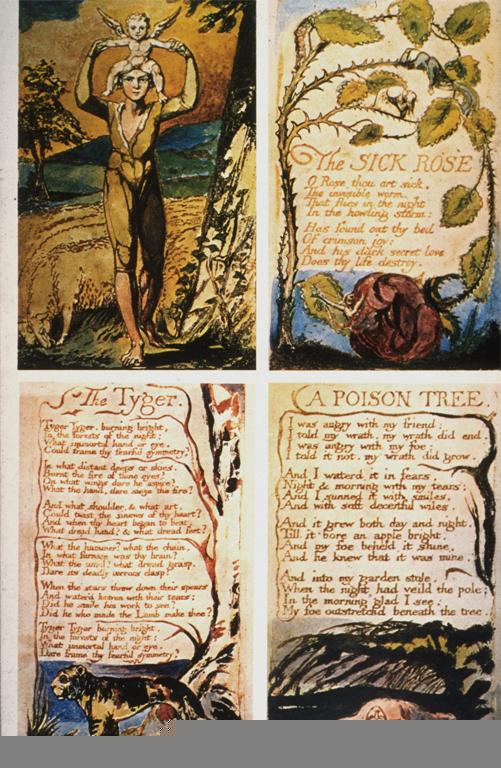 The SICK ROSE
O Rose thou art sick.
The invisible worm,
That flies in the night
In the howling storm:
Has found out thy bed
Of crimson joy:
And his dark secret love
Does thy life destroy.
The Tyger.
Tyger Tyger, burning bright,
In the forests of the night:
What immortal hand or eye,
Could frame thy fearful symmetry?
In what distant deeps or skies.
Burnt the fire of thine eyes?
On what wings dare he aspire?
What the hand, dare sieze the fire?
And what shoulder, & what art,
Could twist the sinews of thy heart?
And when thy heart began to beat,
What dread hand? & what dread feet?
What the hammer? what the chain,
In what furnace was thy brain?
What the anvil? what dread grasp,
Dare its deadly terrors clasp?
When the stars threw down their spears
And water'd heaven with their tears:
Did he smile his work to see?
Did he who made the Lamb make thee?
Tyger Tyger burning bright,
In the forests of the night:
What immortal hand or eye,
Dare frame thy fearful symmetry?
A POISON TREE.
I was angry with my friend;
I told my wrath, my wrath did end.
I was angry with my foe:
I told it not, my wrath did grow.
And I waterd it in fears,
Night & morning with my tears:
And I sunned it with smiles,
And with soft deceitful wiles.
And it grew both day and night.
Till it bore an apple bright.
And my foe beheld it shine.
And he knew that it was mine.
And into my garden stole.
When the night had veild the pole;
In the morning glad I see,
My foe outstretchd beneath the tree.